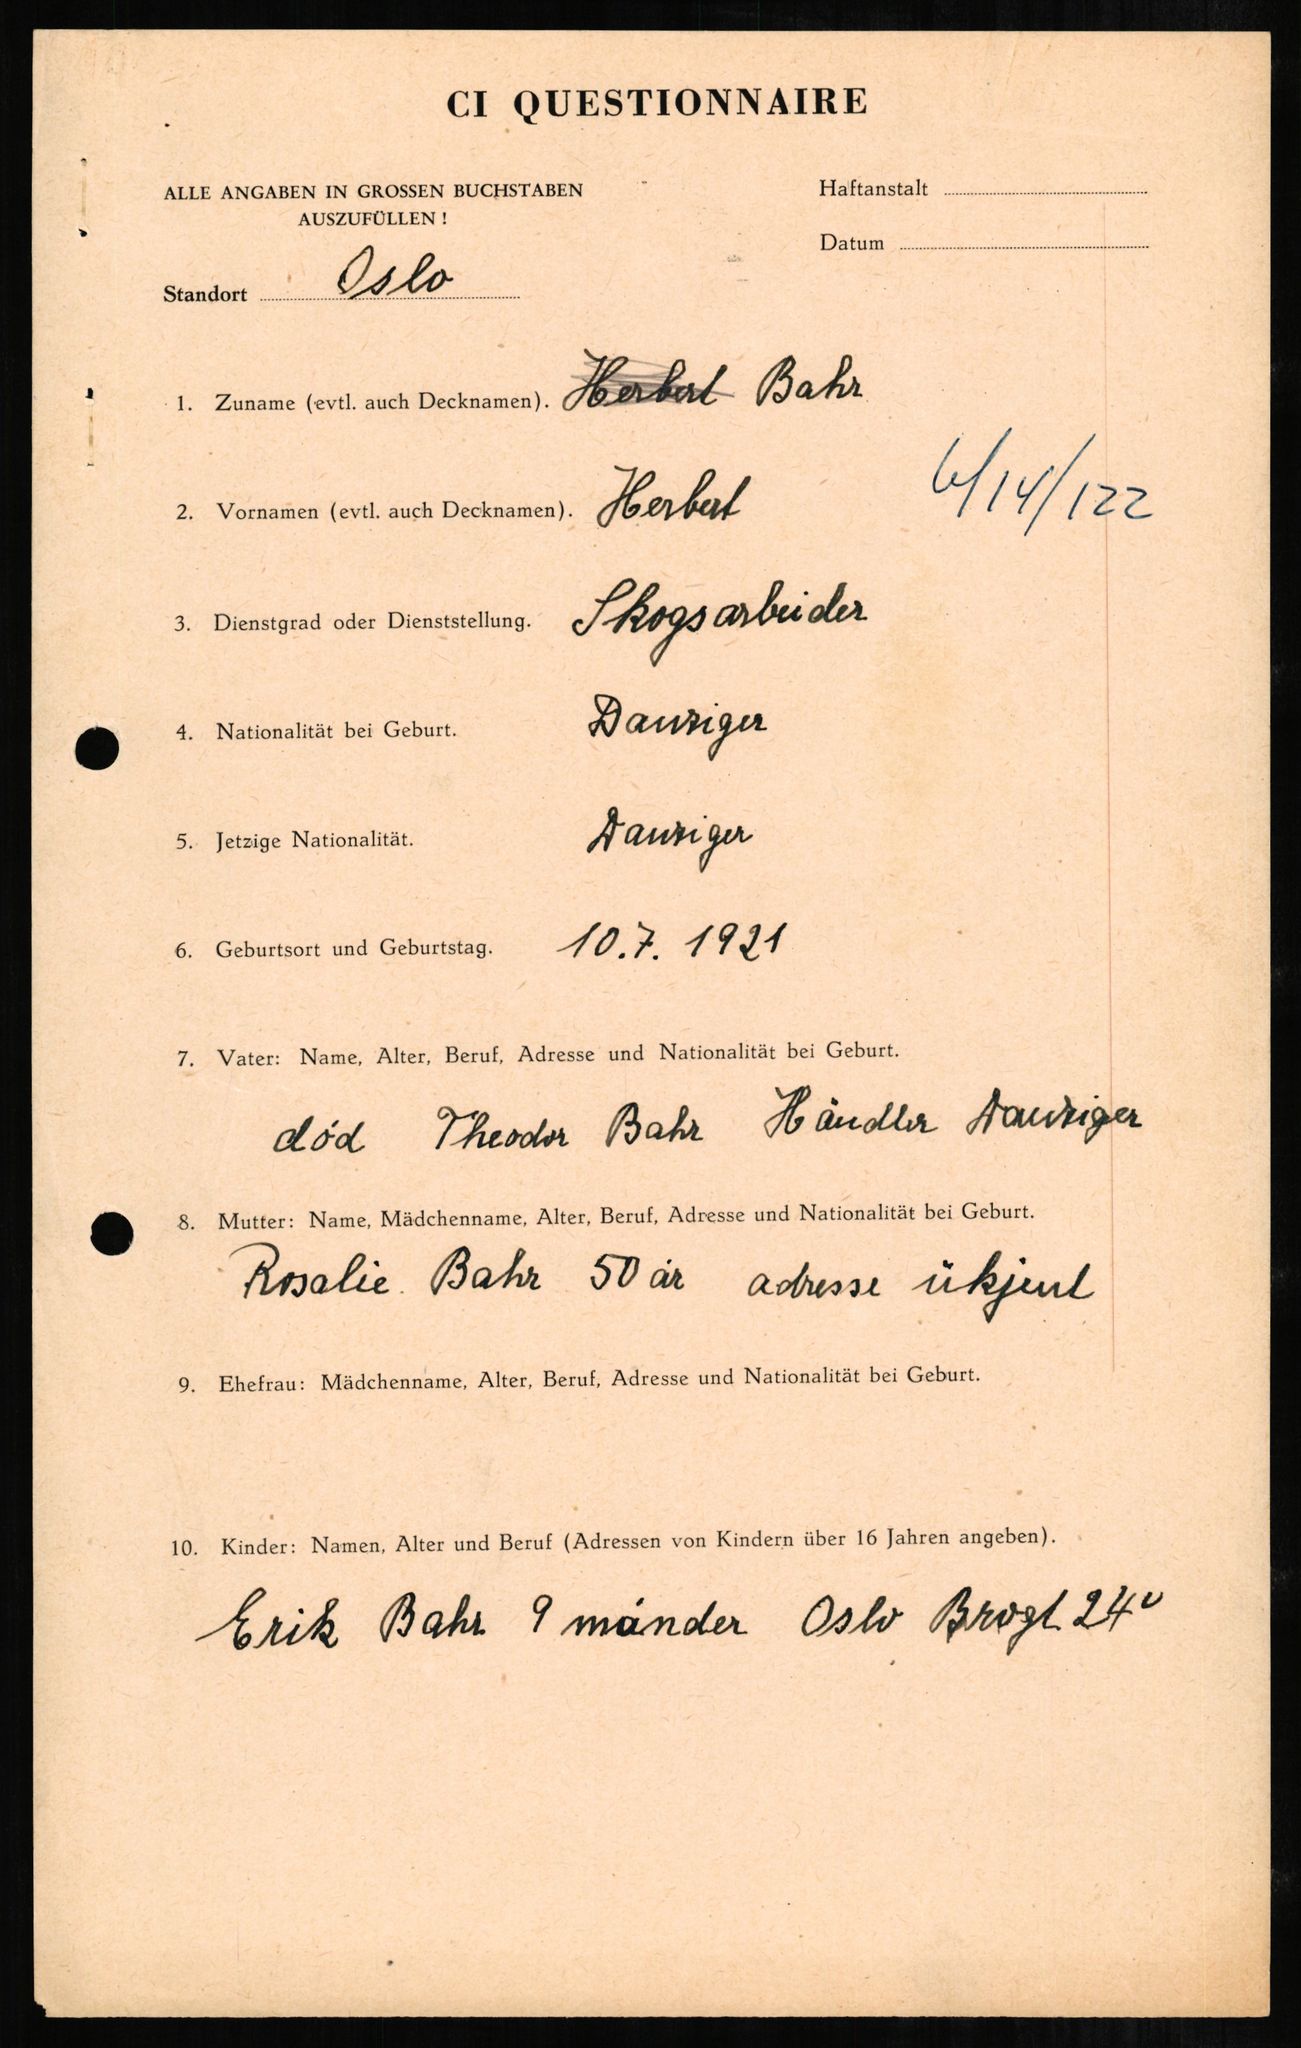 CI QUESTIONNAIRE
ALLE ANGABEN IN GROSSEN BUCHSTABEN
AUSZUFÜLLEN!
Haftanstalt
Datum
Standort Oslo
1. Zuname (evtl. auch Decknamen). Herbert Bahr
2. Vornamen (evtl. auch Decknamen). Herbert
6/14/122
3. Dienstgrad oder Dienststellung. Skogsarbeider
4. Nationalität bei Geburt. Danziger
5. Jetzige Nationalität. Danziger
6. Geburtsort und Geburtstag. 10.7. 1921
7. Vater: Name, Alter, Beruf, Adresse und Nationalität bei Geburt.
död Theodor Bahr Händler Danziger
8. Mutter: Name, Mädchenname, Alter, Beruf, Adresse und Nationalität bei Geburt.
Rosalie Bahr 50 år adresse ükjent
9. Ehefrau: Mädchenname, Alter, Beruf, Adresse und Nationalität bei Geburt.
10. Kinder: Namen, Alter und Beruf (Adressen von Kindern über 16 Jahren angeben).
Erik Bahr 9 månder Oslo Brogt 24